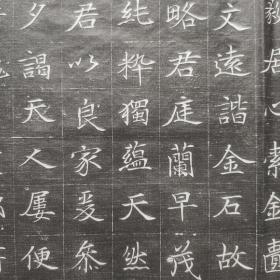 居心素鏡
文遠諧金石故
略君庭蘭早茂
純粹獨蘊天然
君以良家爰泰
夕謁天人屢便